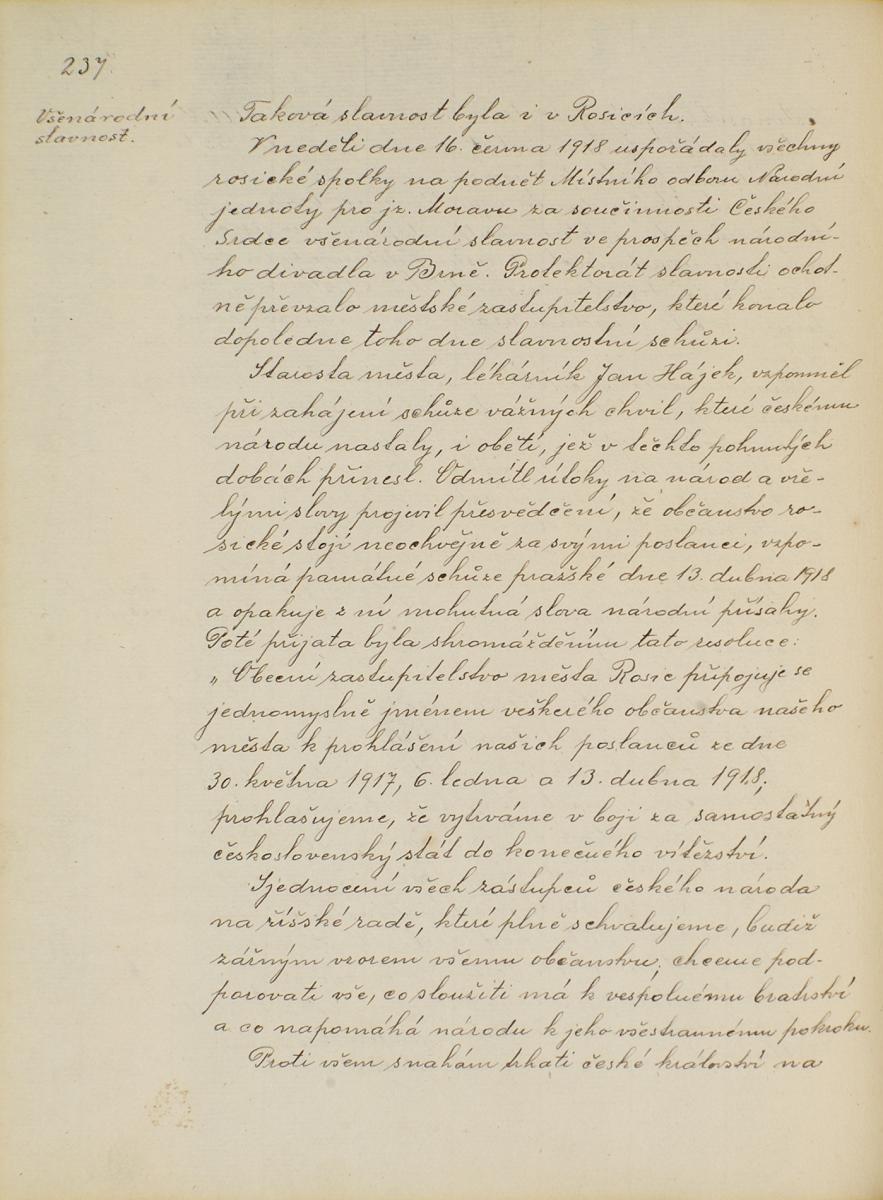 237.
Všenárodní
slavnost.
Taková slavnost byla i v Rosicích.
V neděli dne 16. června 1918 uspořádaly všechny
rosické spolky na podnět Místního odboru Národní
jednoty pro jz. Moravu za součinnosti Českého
Srdce všenárodní slavnost ve prospěch národní-
ho divadla v Brně. Protektorát slavnosti ochot-
ně převzalo městské zastupitelstvo, které konalo
dopoledne toho dne slavnostní schůzi.
Starosta města, lékárník Jan Hájek, vzpomněl
při zahájení schůze vážných chvil, které českému
národu nastaly, i obětí, jež v těchto pohnutých
dobách přinesl. Odmítl útoky na národ a vře-
lými slovy projevil přesvědčení, že občanstvo ro-
sické stojí neochvějně za svými poslanci, vzpo-
míná památné schůze pražské dne 13. dubna 1918
a opakuje z ní mohutná slova národní přísahy.
Poté přijata byla shromážděním tato resoluce:
„Obecní zastupitelstvo města Rosic připojuje se
jednomyslně jménem veškerého občanstva našeho
města k prohlášení našich poslanců ze dne
30. května 1917, 6. ledna a 13. dubna 1918;
prohlašujeme, že vytrváme v boji za samostatný
československý stát do konečného vítězství.
Sjednocení všech zástupců českého národa
na říšské radě, které plně schvalujeme, budiž
zářným vzorem všemu občanstvu; chceme pod-
porovati vše, co sloužiti má k vespolnému bratrství
a co napomáhá národu k jeho všestrannému pokroku.
Proti všem snahám trhati české království na